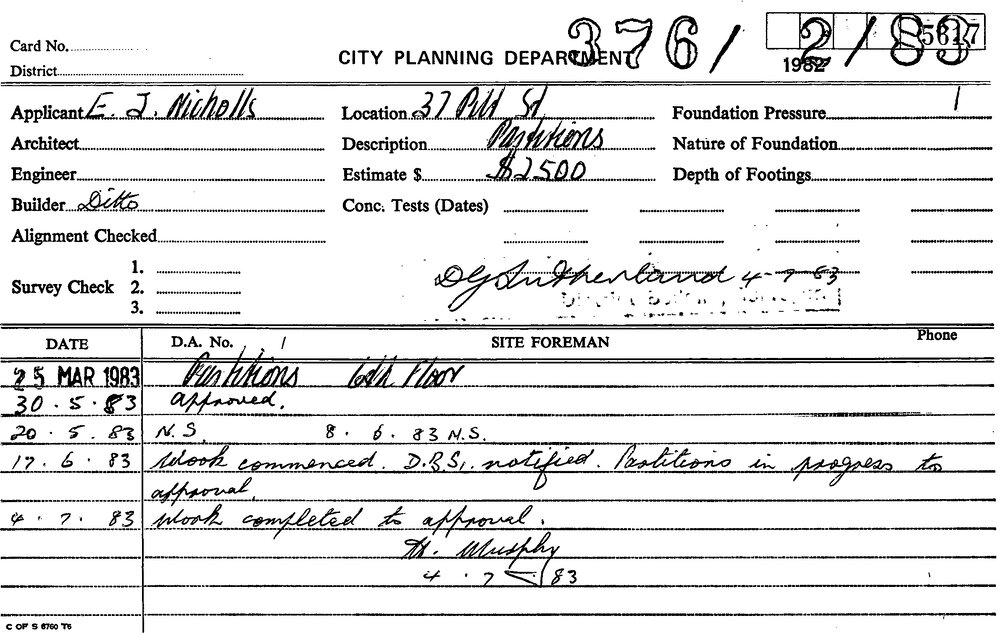 376/ 2/83
5617
Card No.
CITY PLANNING DEPARTMENT
1982
District
Applicant E. J. Nicholls Location 37 Pitt St Foundation Pressure
Architect Description Partitions Nature of Foundation
Engineer Estimate $ $2500 Depth of Footings
Builder Ditto Conc. Tests (Dates)
Alignment Checked
1.
Survey Check 2. DG Sutherland 4-7 83
3.
DATE D.A. No. / SITE FOREMAN Phone
25 MAR 1983 Partitions 6th Floor
30 . 5 . 83 approved.
20 . 5 . 83 N.S. 8 . 6 . 83 N.S.
17 . 6 . 83 Work commenced. D.B.S. notified. Partitions in progress to
approval.
4 . 7 . 83 Work completed to approval.
H. Murphy
4 . 7 83
C OF S 6760 T6